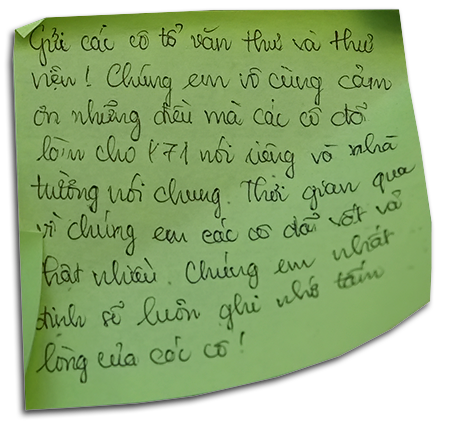 Gửi các cô tổ văn thư và thư
viện! Chúng em vô cùng cảm
ơn những điều mà các cô đã
làm cho K71 nói riêng và nhà
trường nói chung. Thời gian qua
vì chúng em các cô đã vất vả
thật nhiều. Chúng em nhất
định sẽ luôn ghi nhớ tấm
lòng của các cô!